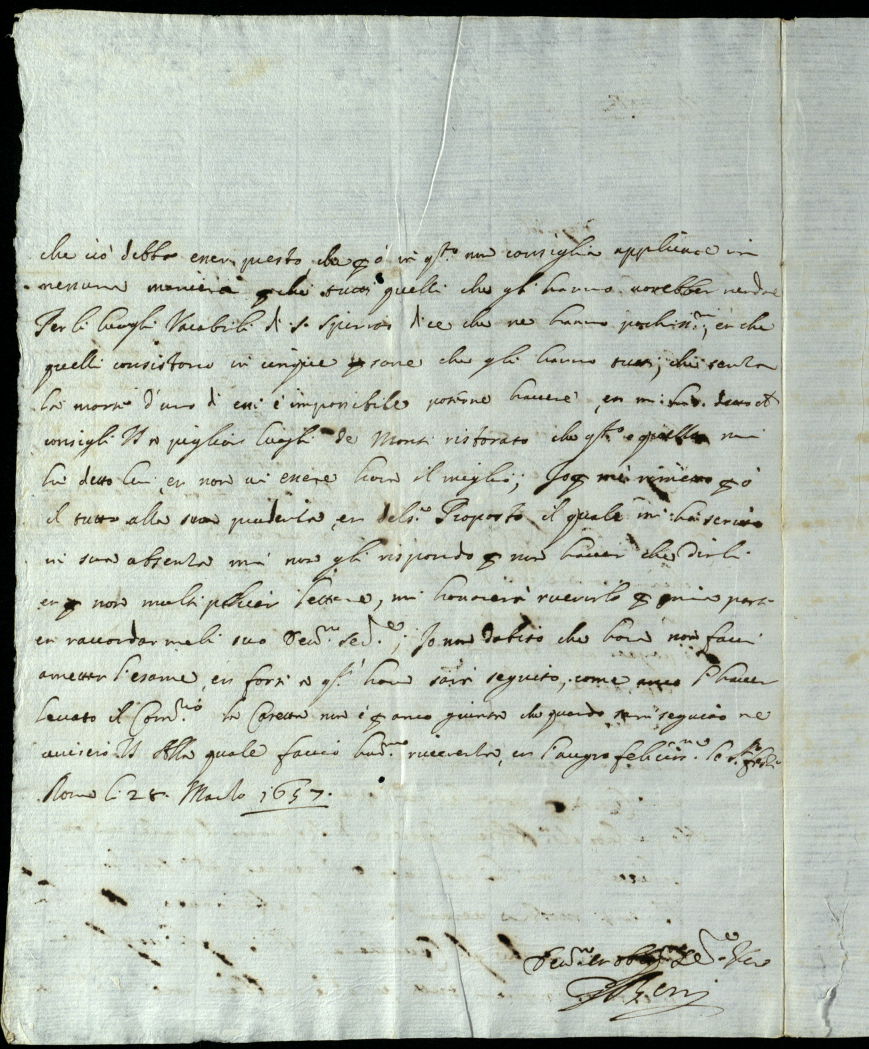 che ciò debba esser questo, che p ò in qto non consiglia applicare in
nessuna maniera p che tutti quelli che gli hanno vorebber vender
Per li luoghi Vacabili di S. Spirito dice che ne hanno pochiss.mi, et che
quelli consistono in cinque psone che gli hanno tutti, che senza
la morte d'uno di essi è impossibile poterne havere, et mi ha detto ch
consigli VS a pigliar luoghi de Monti ristorato che qto e quello mi
ha detto lui, et non vi essere hora il meglio; Io p me rimetto p ò
il tutto alla sua prudenza, et del S.r Proposto il quale mi ha scritto
in sua absenza mà non gli rispondo p non haver che dirli
et p non multiplicar lettere, mi honorerà riverirlo p mia parte
et raccordarmeli suo Dev.mo Ser.e; Io non dubito che hora non facci
ametter l'esame, et forsi a qst' hora sarà seguito, come anco l'haver
levato il Com.rio la Casetta non è p anco giunta che quando sarà seguito ne
aviserò VS Alla quale faccio hum.ma riverenza, et l'auguro feliciss.me le S.te feste
Roma li 28 Marzo 1657.
Dev.mo et oblig.mo Se.re Vero